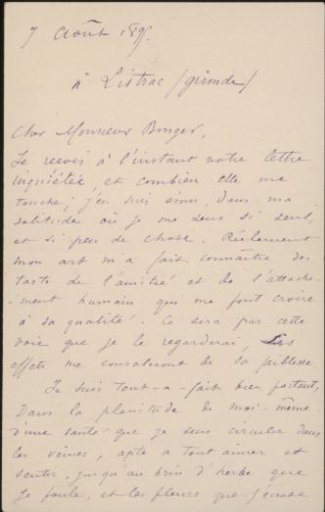 7 Août 189
à Listrac (gironde)
Cher Monsieur Bonger,
Je reçois à l'instant votre lettre
inquiétée, et combien elle me
touche; j'en suis ému, Dans ma
solitude où je me sens si seul,
et si peu de chose. Réellement
mon art m'a fait connaître des
tacts de l'amitié et de l'attache-
-ment humain qui me font croire
à sa qualité. Ce sera par cette
voie que je le regarderai, Les
effets me consoleront de sa faiblesse.
Je suis tout-a-fait bien portant,
Dans la plénitude de moi-même
d'une santé que je sens circuler dans
les veines, apte à tout aimer et
sentir, jusqu'au brin d'herbe que
je foule, et les fleurs que j'écrase